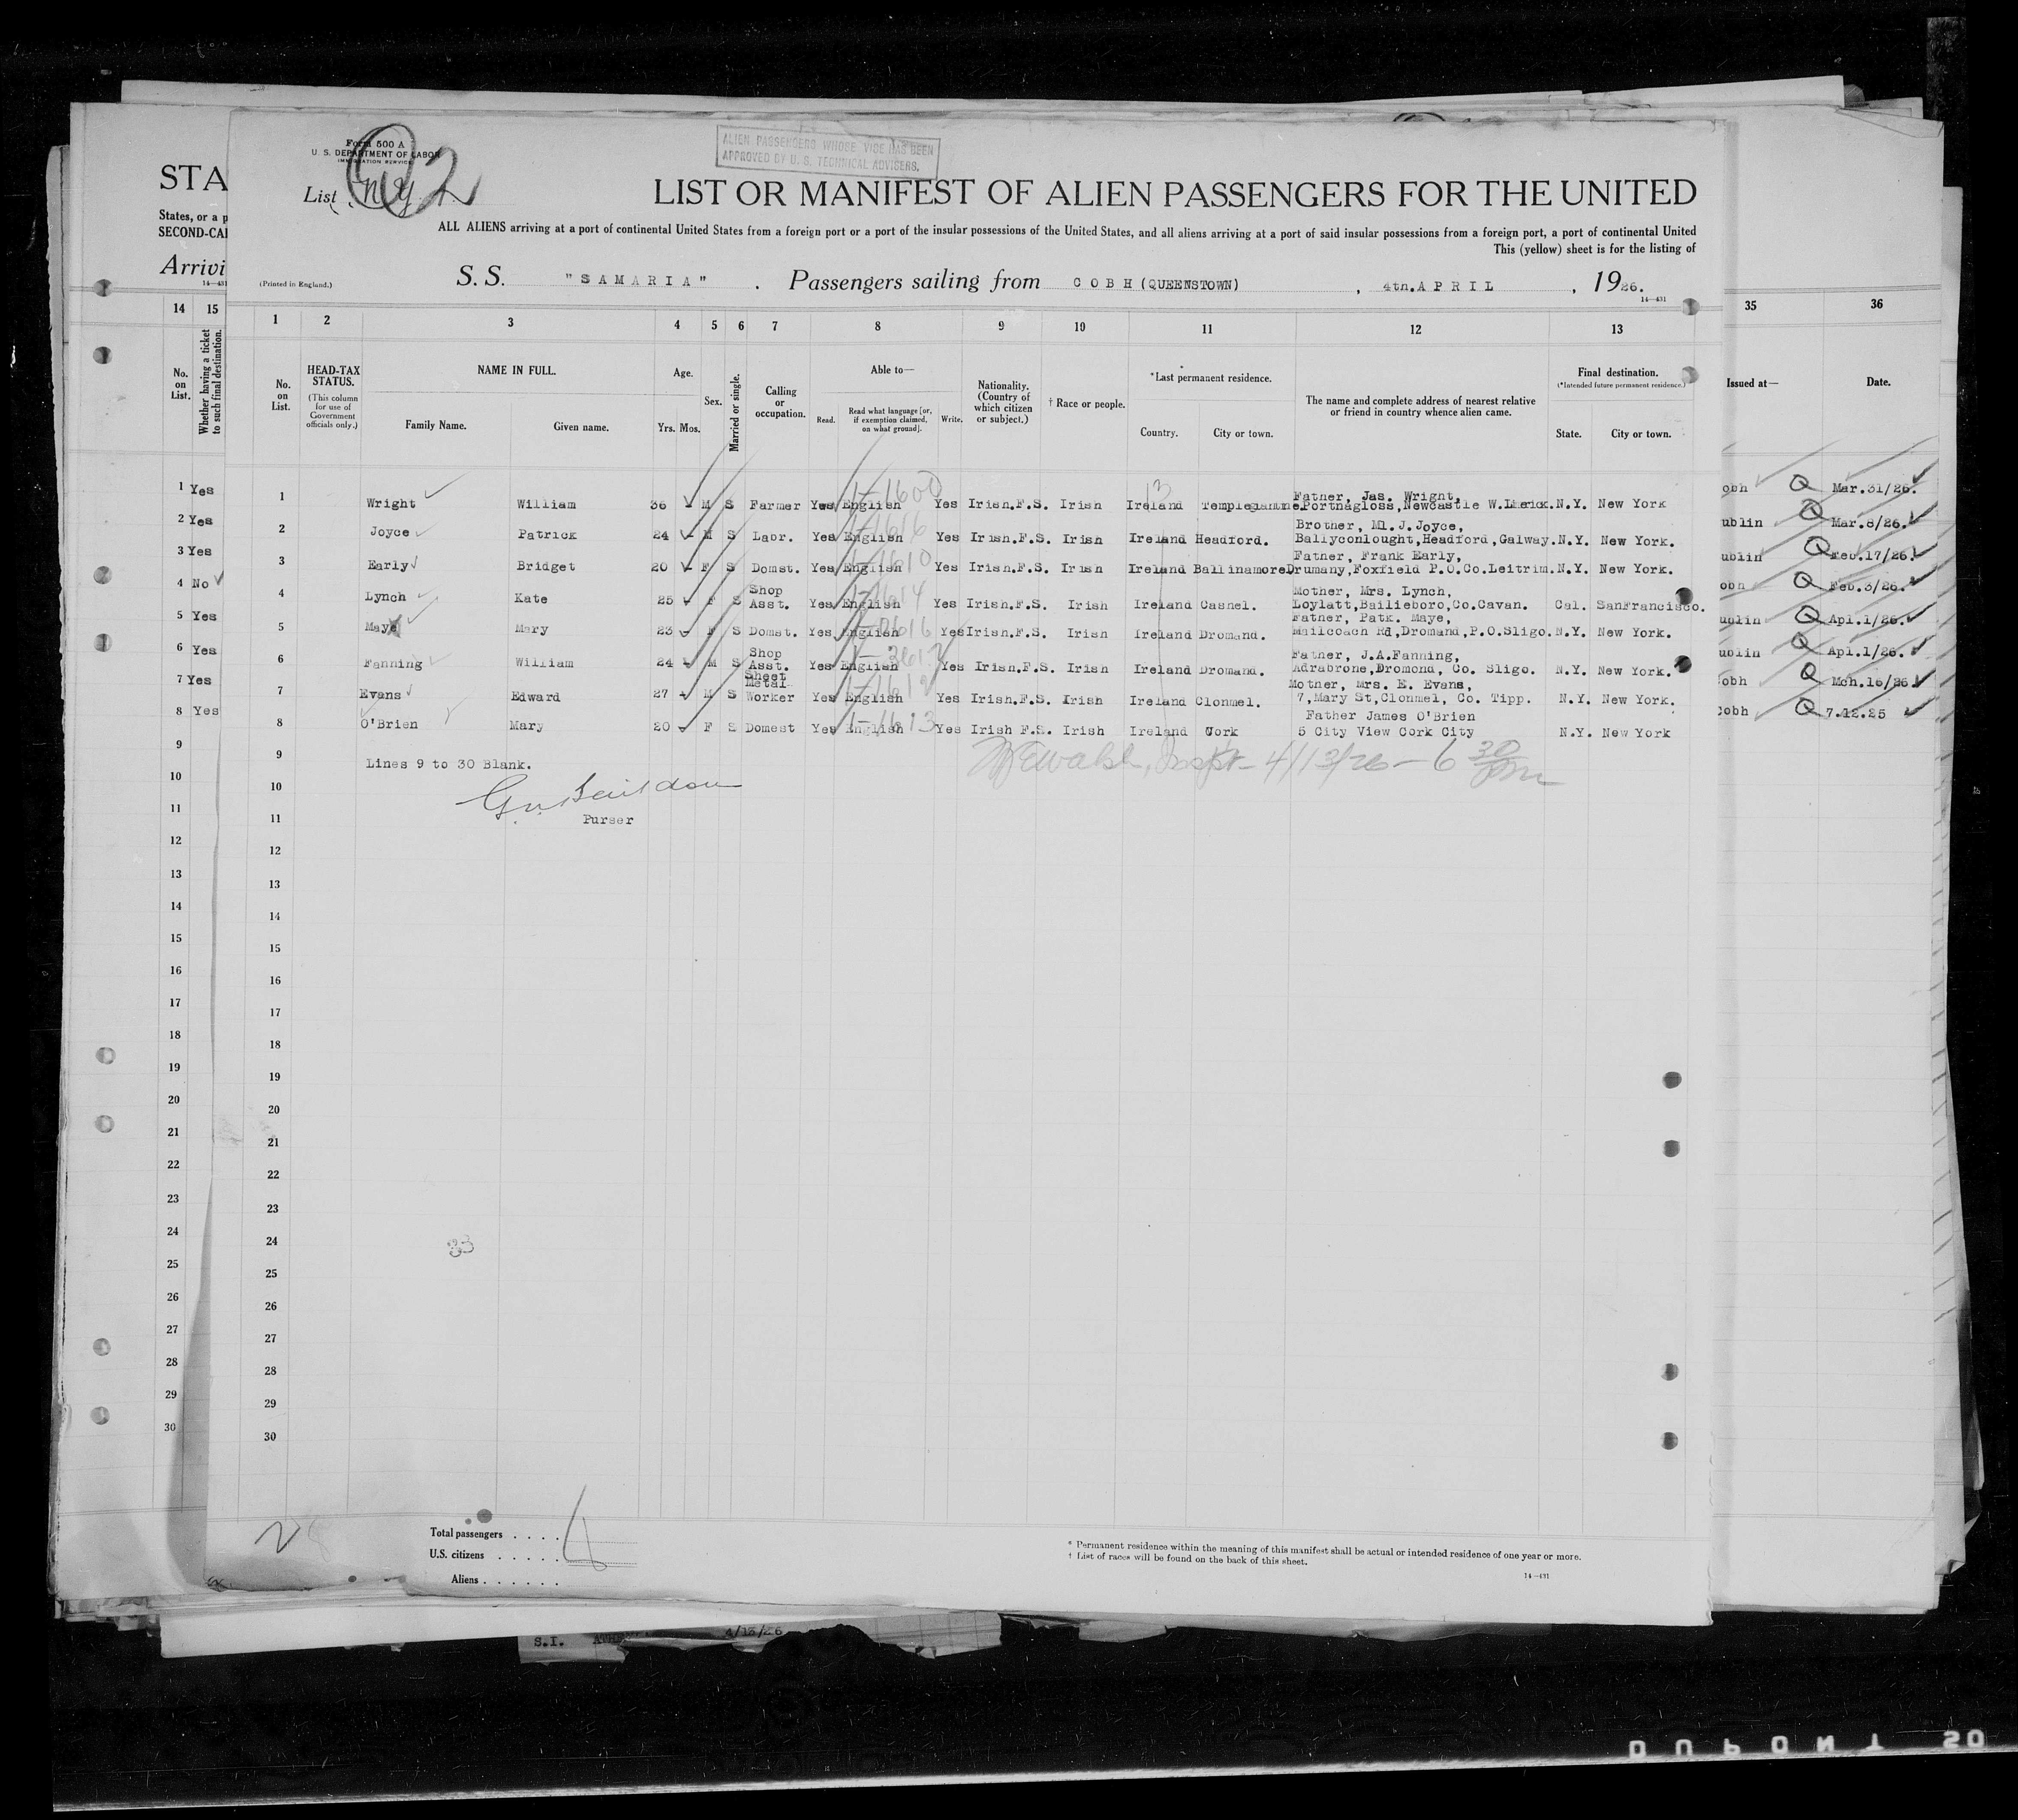 Form 500 A
U. S. DEPARTMENT OF LABOR
IMMIGRATION SERVICE
List 2
ALIEN PASSENGERS WHOSE VISE HAS BEEN
APPROVED BY U. S. TECHNICAL ADVISERS.
STA
LIST OR MANIFEST OF ALIEN PASSENGERS FOR THE UNITED
States, or a p
SECOND-CA
ALL ALIENS arriving at a port of continental United States from a foreign port or a port of the insular possessions of the United States, and all aliens arriving at a port of said insular possessions from a foreign port, a port of continental United
This (yellow) sheet is for the listing of
Arrivi
14—431
(Printed in England.)
S. S. "SAMARIA" . Passengers sailing from COBH (QUEENSTOWN) , 4th. APRIL , 1926.
14—431
14 15 1 2 3 4 5 6 7 8 9 10 11 12 13 35 36
No. on List.
Whether having a ticket to such final destination.
No. on List.
HEAD-TAX STATUS.
(This column for use of Government officials only.)
NAME IN FULL.
Family Name. Given name.
Age.
Yrs. Mos.
Sex.
Married or single.
Calling or occupation.
Able to—
Read. Read what language [or, if exemption claimed, on what ground]. Write.
Nationality. (Country of which citizen or subject.)
† Race or people.
*Last permanent residence.
Country. City or town.
The name and complete address of nearest relative or friend in country whence alien came.
Final destination.
(*Intended future permanent residence.)
State. City or town.
Issued at— Date.
1 Yes 1 Wright William 36 M S Farmer Yes English Yes Irish.F.S. Irish Ireland Templeglantine. Father, Jas. Wright, Portnagloss, Newcastle W. Limerick. N.Y. New York obh Mar.31/26.
2 Yes 2 Joyce Patrick 24 M S Labr. Yes English Yes Irish.F.S. Irish Ireland Headford. Brother, Ml. J. Joyce, Ballyconlought, Headford, Galway. N.Y. New York. ublin Mar.8/26.
3 Yes 3 Early Bridget 20 F S Domst. Yes English Yes Irish.F.S. Irish Ireland Ballinamore Father, Frank Early, Drumany, Foxfield P.O. Co. Leitrim. N.Y. New York. ublin Feb.17/26.
4 No 4 Lynch Kate 25 F S Shop Asst. Yes English Yes Irish.F.S. Irish Ireland Cashel. Mother, Mrs. Lynch, Loylatt, Bailieboro, Co. Cavan. Cal. SanFrancisco. obh Feb.3/26.
5 Yes 5 Maye Mary 23 F S Domst. Yes English Yes Irish.F.S. Irish Ireland Dromand. Father, Patk. Maye, Mailcoach Rd, Dromand, P.O. Sligo. N.Y. New York. ublin Apl.1/26.
6 Yes 6 Fanning William 24 M S Shop Asst. Yes English Yes Irish.F.S. Irish Ireland Dromand. Father, J.A. Fanning, Adrabrone, Dromond, Co. Sligo. N.Y. New York. ublin Apl.1/26.
7 Yes 7 Evans Edward 27 M S Sheet Metal Worker Yes English Yes Irish.F.S. Irish Ireland Clonmel. Mother, Mrs. E. Evans, 7, Mary St, Clonmel, Co. Tipp. N.Y. New York. obh Mch.16/26.
8 Yes 8 O'Brien Mary 20 F S Domest Yes English Yes Irish F.S. Irish Ireland Cork Father James O'Brien 5 City View Cork City N.Y. New York Cobh 7.12.25
9 9 Lines 9 to 30 Blank.
4/13/26 - 6 30 pm
10 10
11 11 Purser
12 12
13 13
14 14
15 15
16 16
17 17
18 18
19 19
20 20
21 21
22 22
23 23
24 24
33
25 25
26 26
27 27
28 28
29 29
30 30
Total passengers . . . .
U.S. citizens . . . . .
Aliens . . . . . .
* Permanent residence within the meaning of this manifest shall be actual or intended residence of one year or more.
† List of races will be found on the back of this sheet.
14—431
S.I. 4/13/26
DUPONT 20